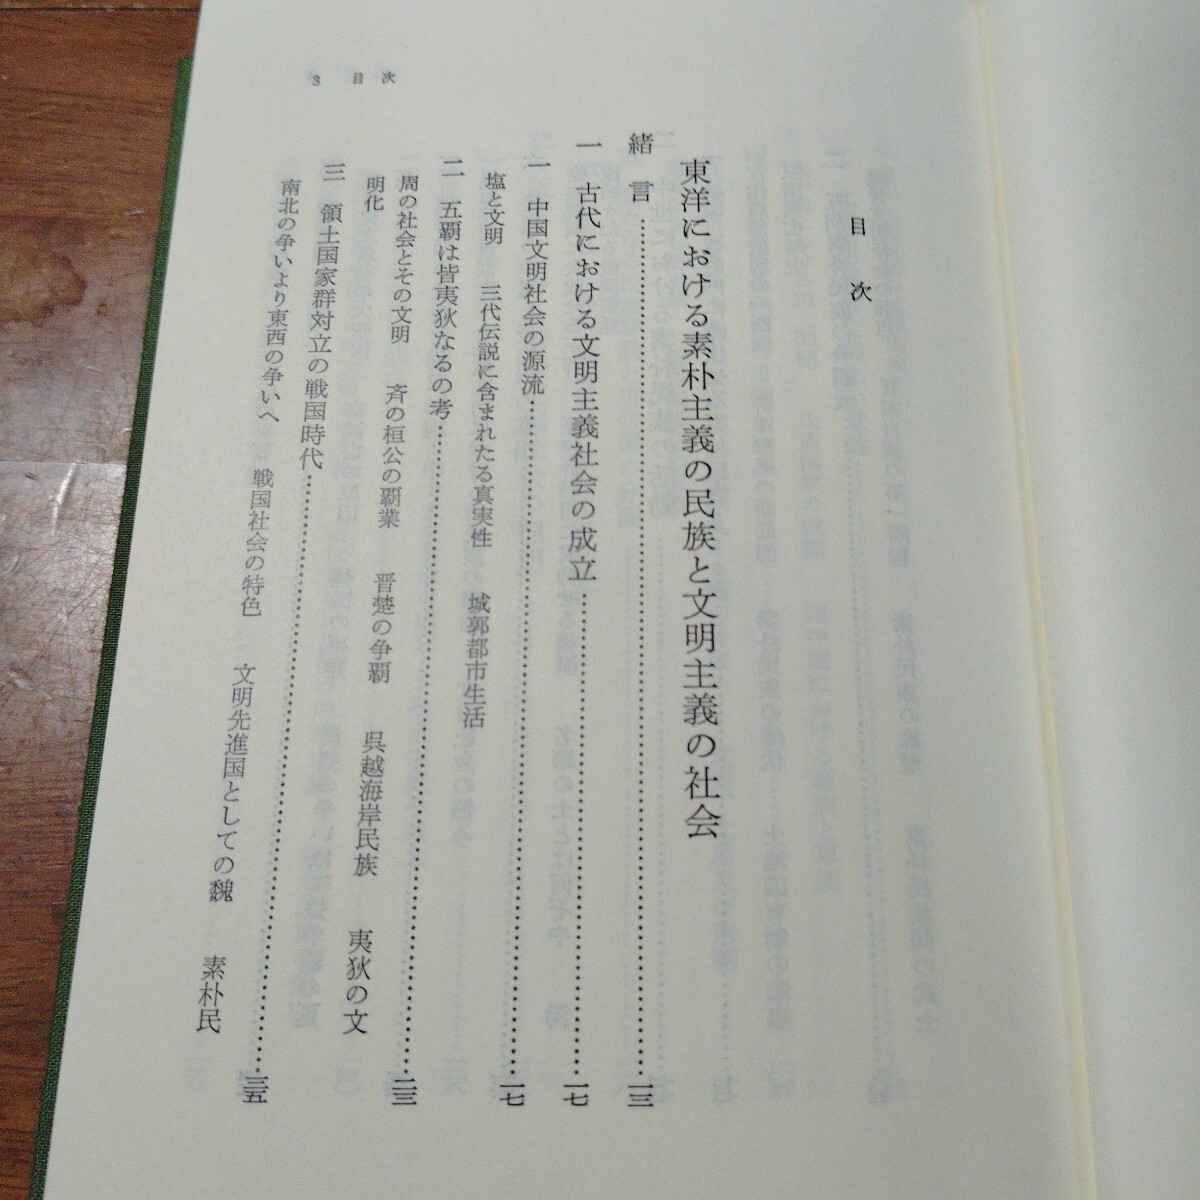 3 目次
目次
東洋における素朴主義の民族と文明主義の社会
緒言……………………一三
一 古代における文明主義社会の成立……………………一七
一 中国文明社会の源流……………………一七
塩と文明 三代伝説に含まれたる真実性 城郭都市生活
二 五覇は皆夷狄なるの考……………………二三
周の社会とその文明 斉の桓公の覇業 晋楚の争覇 呉越海岸民族 夷狄の文
明化
三 領土国家群対立の戦国時代……………………三五
南北の争いより東西の争いへ 戦国社会の特色 文明先進国としての魏 素朴民